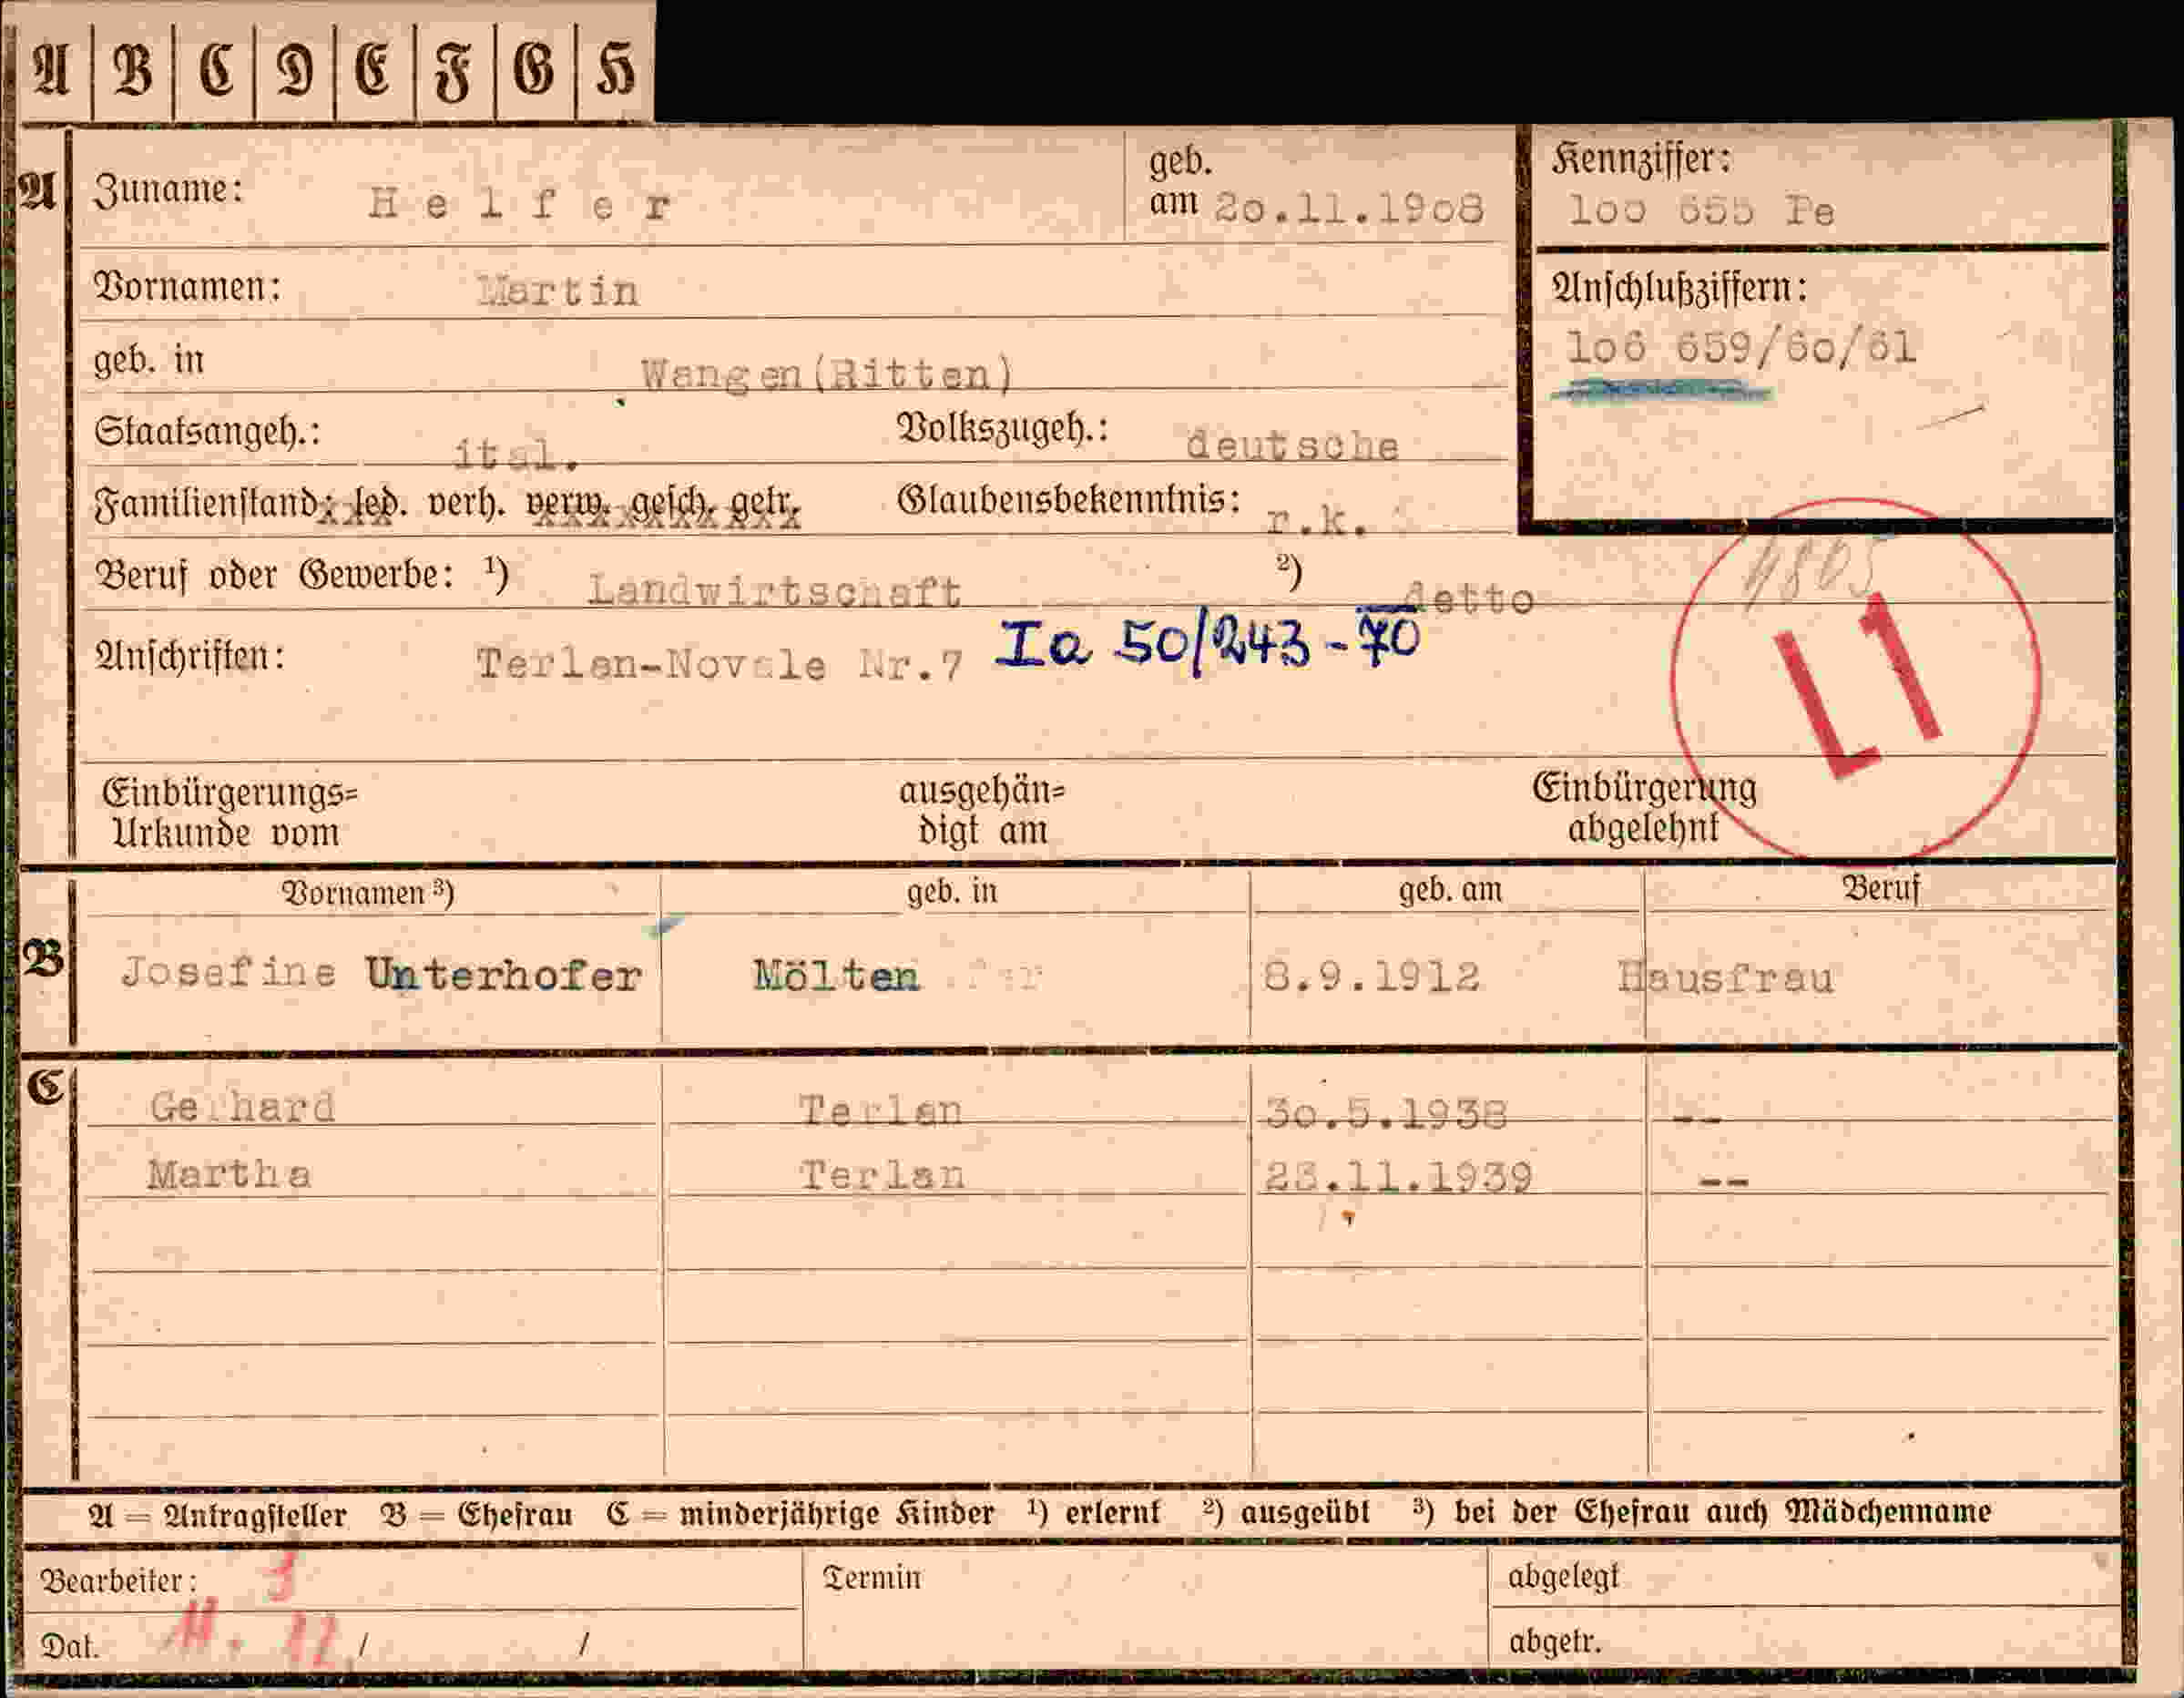 A B C D E F G H
A Zuname: Helfer geb. am 20.11.1908
Kennziffer:
Vornamen: Martin
Anschlußziffern:
106 659/60/61
geb. in Wangen(Ritten)
Staatsangeh.: ital. Volkszugeh.: deutsche
Familienstand: led. verh. verw. gesch. getr. Glaubensbekenntnis: r.k.
Beruf oder Gewerbe: ¹) Landwirtschaft ²) detto
Anschriften: Terlan-Novale Nr.7 Ia 50/243-70
L1
Einbürgerungs=
Urkunde vom
ausgehän=
digt am
Einbürgerung
abgelehnt
Vornamen ³) geb. in geb. am Beruf
B Josefine Unterhofer Mölten 8.9.1912 Hausfrau
C Gerhard Terlan 30.5.1938 --
Martha Terlan 28.11.1939 --
A = Antragsteller B = Ehefrau C = minderjährige Kinder ¹) erlernt ²) ausgeübt ³) bei der Ehefrau auch Mädchenname
Bearbeiter: Termin abgelegt
Dat. / / abgetr.